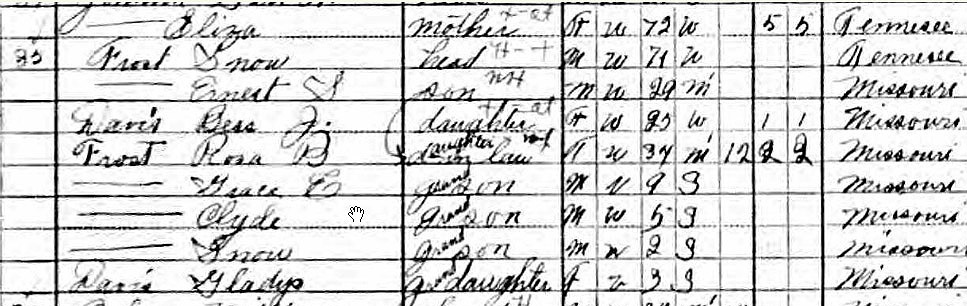 — Eliza mother F W 72 W 5 5 Tennessee
Frost Snow head M W 71 W Tennessee
— Ernest S son M W 29 M Missouri
Davis Bess J. daughter F W 25 W 1 1 Missouri
Frost Rosa B daughter in law F W 34 M 12 2 2 Missouri
— Grace E grand son M W 9 S Missouri
— Clyde grand son M W 5 S Missouri
— Snow grand son M W 2 S Missouri
Davis Gladys g daughter F W 3 S Missouri